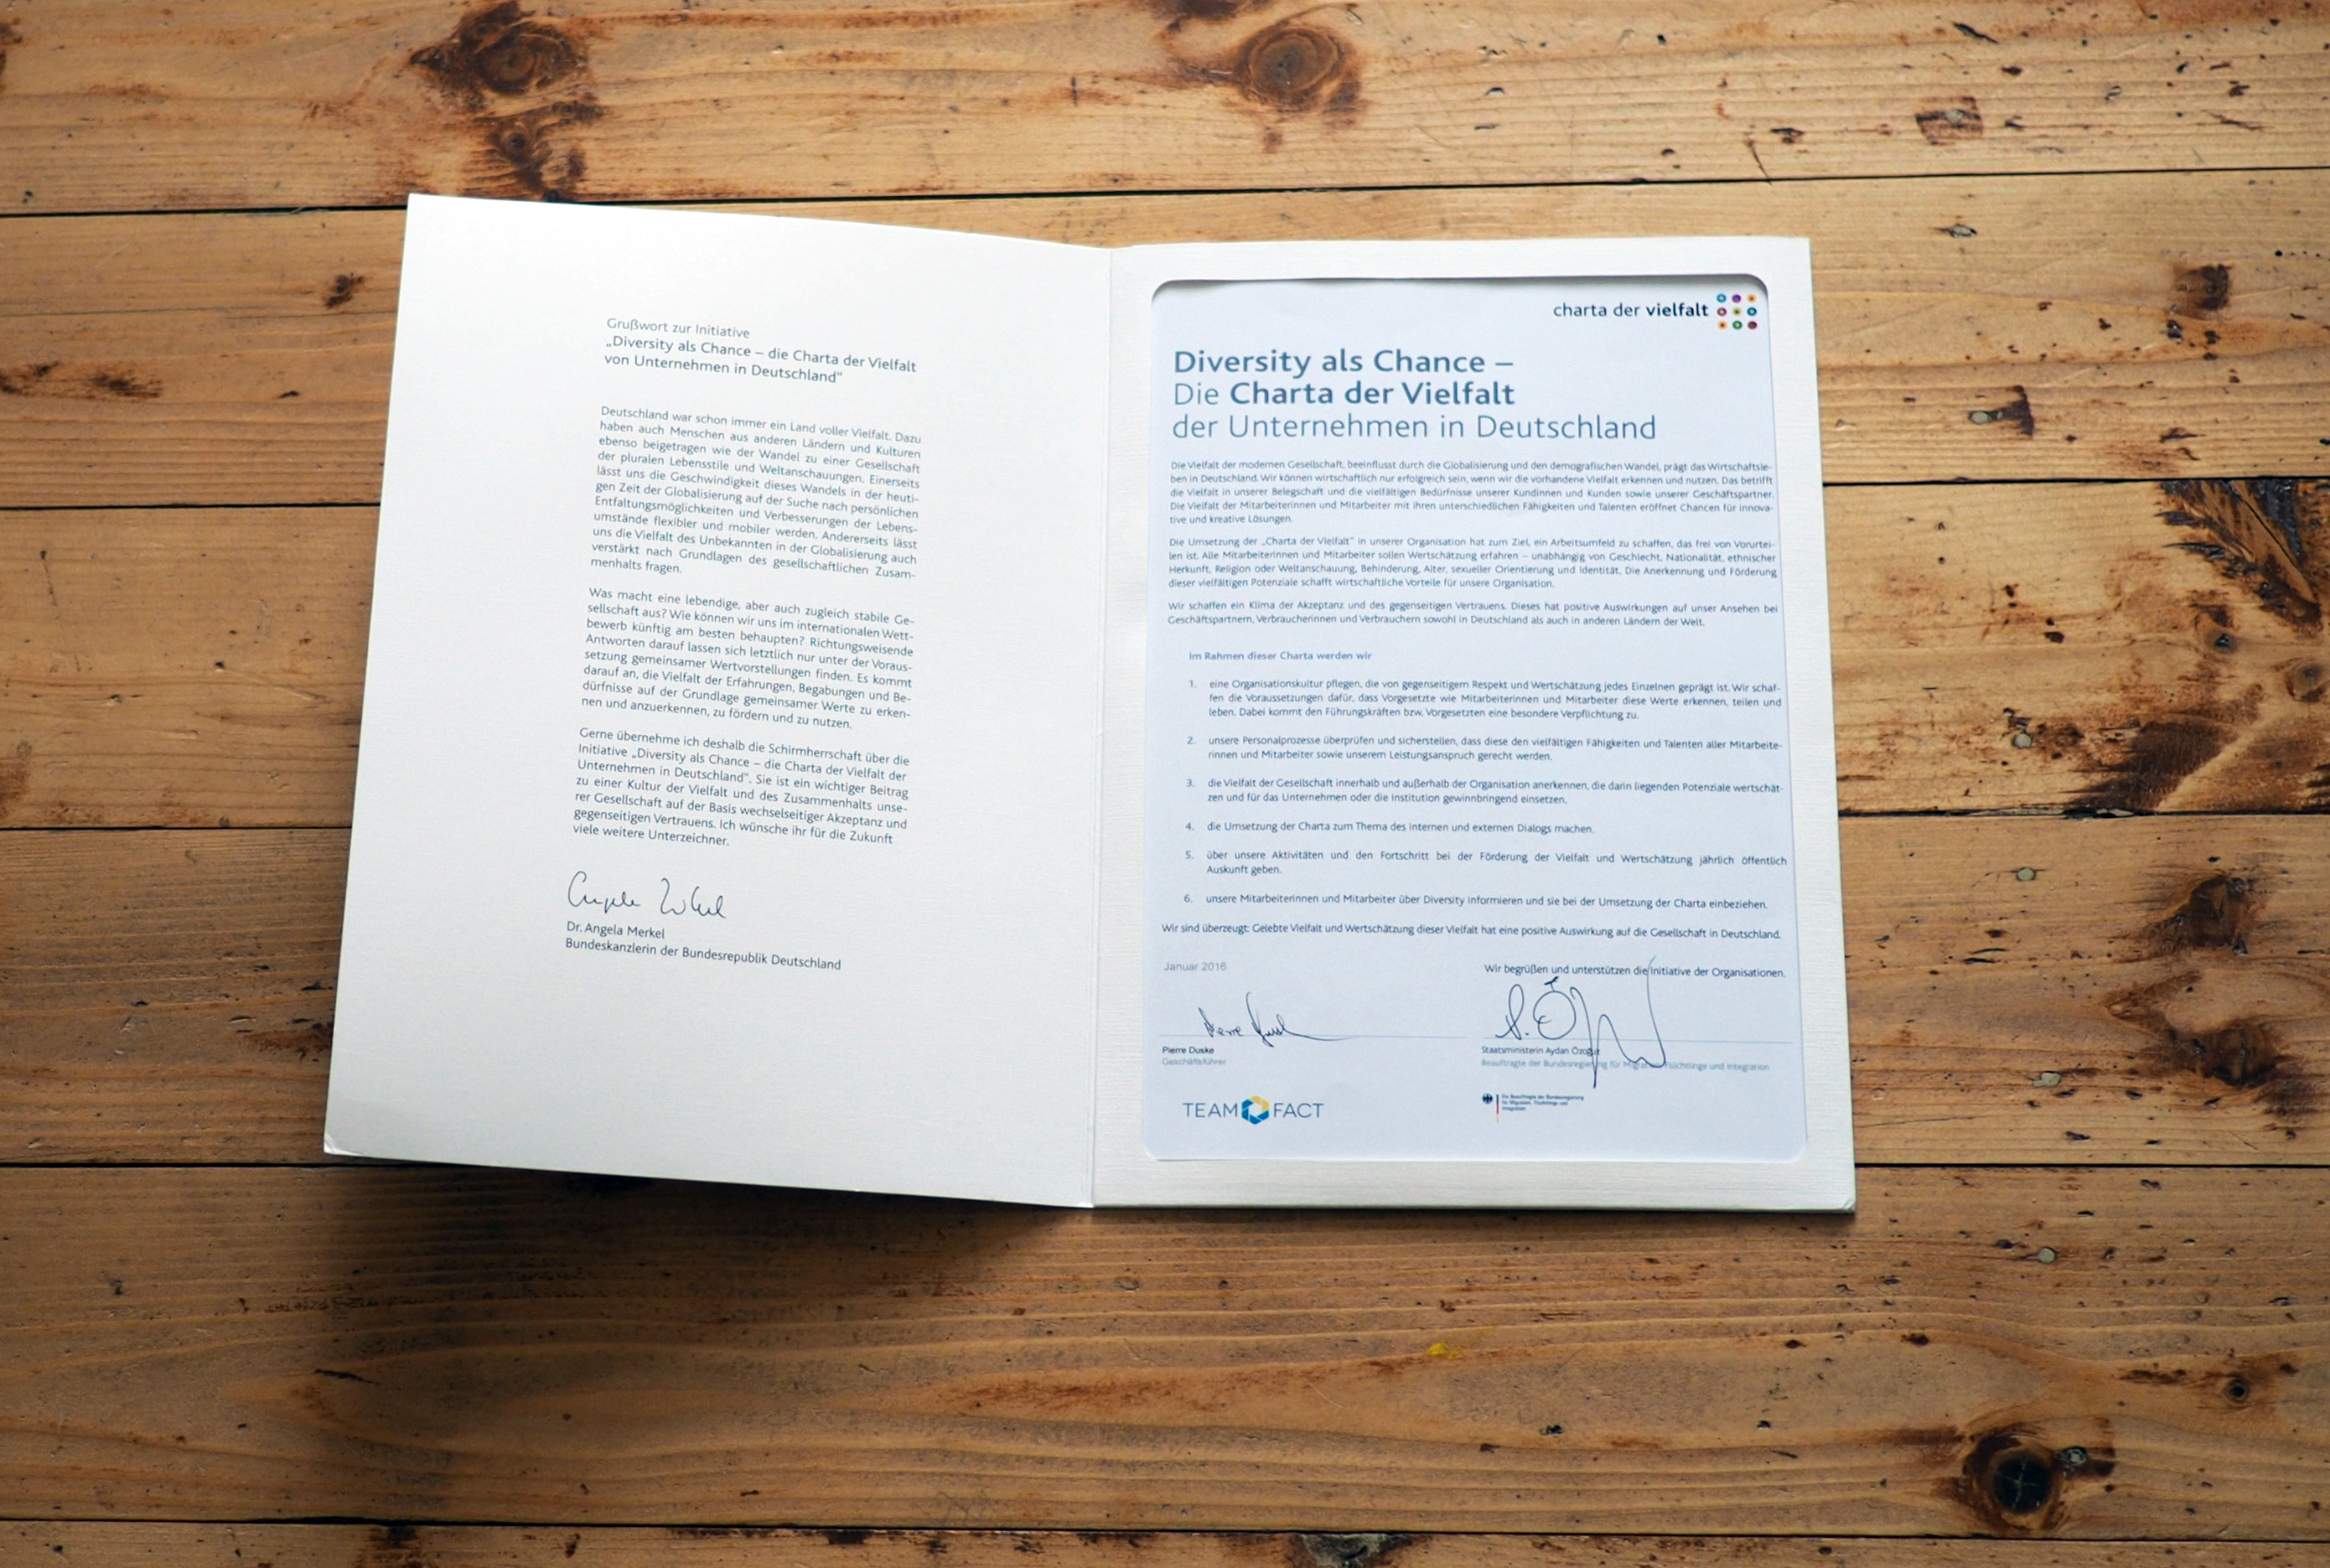 Grußwort zur Initiative
„Diversity als Chance – die Charta der Vielfalt
von Unternehmen in Deutschland“
Deutschland war schon immer ein Land voller Vielfalt. Dazu
haben auch Menschen aus anderen Ländern und Kulturen
ebenso beigetragen wie der Wandel zu einer Gesellschaft
der pluralen Lebensstile und Weltanschauungen. Einerseits
lässt uns die Geschwindigkeit dieses Wandels in der heuti-
gen Zeit der Globalisierung auf der Suche nach persönlichen
Entfaltungsmöglichkeiten und Verbesserungen der Lebens-
umstände flexibler und mobiler werden. Andererseits lässt
uns die Vielfalt des Unbekannten in der Globalisierung auch
verstärkt nach Grundlagen des gesellschaftlichen Zusam-
menhalts fragen.
Was macht eine lebendige, aber auch zugleich stabile Ge-
sellschaft aus? Wie können wir uns im internationalen Wett-
bewerb künftig am besten behaupten? Richtungsweisende
Antworten darauf lassen sich letztlich nur unter der Voraus-
setzung gemeinsamer Wertvorstellungen finden. Es kommt
darauf an, die Vielfalt der Erfahrungen, Begabungen und Be-
dürfnisse auf der Grundlage gemeinsamer Werte zu erken-
nen und anzuerkennen, zu fördern und zu nutzen.
Gerne übernehme ich deshalb die Schirmherrschaft über die
Initiative „Diversity als Chance – die Charta der Vielfalt der
Unternehmen in Deutschland“. Sie ist ein wichtiger Beitrag
zu einer Kultur der Vielfalt und des Zusammenhalts unse-
rer Gesellschaft auf der Basis wechselseitiger Akzeptanz und
gegenseitigen Vertrauens. Ich wünsche ihr für die Zukunft
viele weitere Unterzeichner.
Angela Merkel
Dr. Angela Merkel
Bundeskanzlerin der Bundesrepublik Deutschland
charta der vielfalt
Diversity als Chance –
Die Charta der Vielfalt
der Unternehmen in Deutschland
Die Vielfalt der modernen Gesellschaft, beeinflusst durch die Globalisierung und den demografischen Wandel, prägt das Wirtschaftsle-
ben in Deutschland. Wir können wirtschaftlich nur erfolgreich sein, wenn wir die vorhandene Vielfalt erkennen und nutzen. Das betrifft
die Vielfalt in unserer Belegschaft und die vielfältigen Bedürfnisse unserer Kundinnen und Kunden sowie unserer Geschäftspartner.
Die Vielfalt der Mitarbeiterinnen und Mitarbeiter mit ihren unterschiedlichen Fähigkeiten und Talenten eröffnet Chancen für innova-
tive und kreative Lösungen.
Die Umsetzung der „Charta der Vielfalt“ in unserer Organisation hat zum Ziel, ein Arbeitsumfeld zu schaffen, das frei von Vorurtei-
len ist. Alle Mitarbeiterinnen und Mitarbeiter sollen Wertschätzung erfahren – unabhängig von Geschlecht, Nationalität, ethnischer
Herkunft, Religion oder Weltanschauung, Behinderung, Alter, sexueller Orientierung und Identität. Die Anerkennung und Förderung
dieser vielfältigen Potenziale schafft wirtschaftliche Vorteile für unsere Organisation.
Wir schaffen ein Klima der Akzeptanz und des gegenseitigen Vertrauens. Dieses hat positive Auswirkungen auf unser Ansehen bei
Geschäftspartnern, Verbraucherinnen und Verbrauchern sowohl in Deutschland als auch in anderen Ländern der Welt.
Im Rahmen dieser Charta werden wir
1. eine Organisationskultur pflegen, die von gegenseitigem Respekt und Wertschätzung jedes Einzelnen geprägt ist. Wir schaf-
fen die Voraussetzungen dafür, dass Vorgesetzte wie Mitarbeiterinnen und Mitarbeiter diese Werte erkennen, teilen und
leben. Dabei kommt den Führungskräften bzw. Vorgesetzten eine besondere Verpflichtung zu.
2. unsere Personalprozesse überprüfen und sicherstellen, dass diese den vielfältigen Fähigkeiten und Talenten aller Mitarbeite-
rinnen und Mitarbeiter sowie unserem Leistungsanspruch gerecht werden.
3. die Vielfalt der Gesellschaft innerhalb und außerhalb der Organisation anerkennen, die darin liegenden Potenziale wertschät-
zen und für das Unternehmen oder die Institution gewinnbringend einsetzen.
4. die Umsetzung der Charta zum Thema des internen und externen Dialogs machen.
5. über unsere Aktivitäten und den Fortschritt bei der Förderung der Vielfalt und Wertschätzung jährlich öffentlich
Auskunft geben.
6. unsere Mitarbeiterinnen und Mitarbeiter über Diversity informieren und sie bei der Umsetzung der Charta einbeziehen.
Wir sind überzeugt: Gelebte Vielfalt und Wertschätzung dieser Vielfalt hat eine positive Auswirkung auf die Gesellschaft in Deutschland.
Januar 2016
Wir begrüßen und unterstützen die Initiative der Organisationen.
Pierre Duske
Pierre Duske
Geschäftsführer
Staatsministerin Aydan Özoğuz
Beauftragte der Bundesregierung für Migration, Flüchtlinge und Integration
TEAM FACT
Die Beauftragte der Bundesregierung
für Migration, Flüchtlinge und
Integration